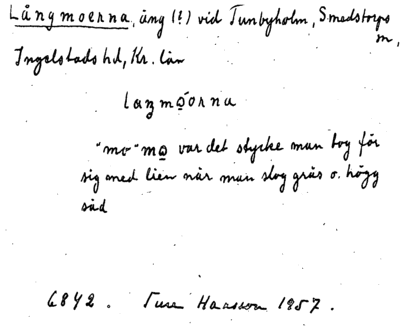 Långmoerna, äng (?) vid Tunbyholm, Smedstorps
m,
Ingelstads hd, Kr. län
laŋmo̱orna
"mo" mo̱ var det stycke man tog för
sig med lien när man slog gräs o. högg
säd
6842. Ture Hansson 1957.